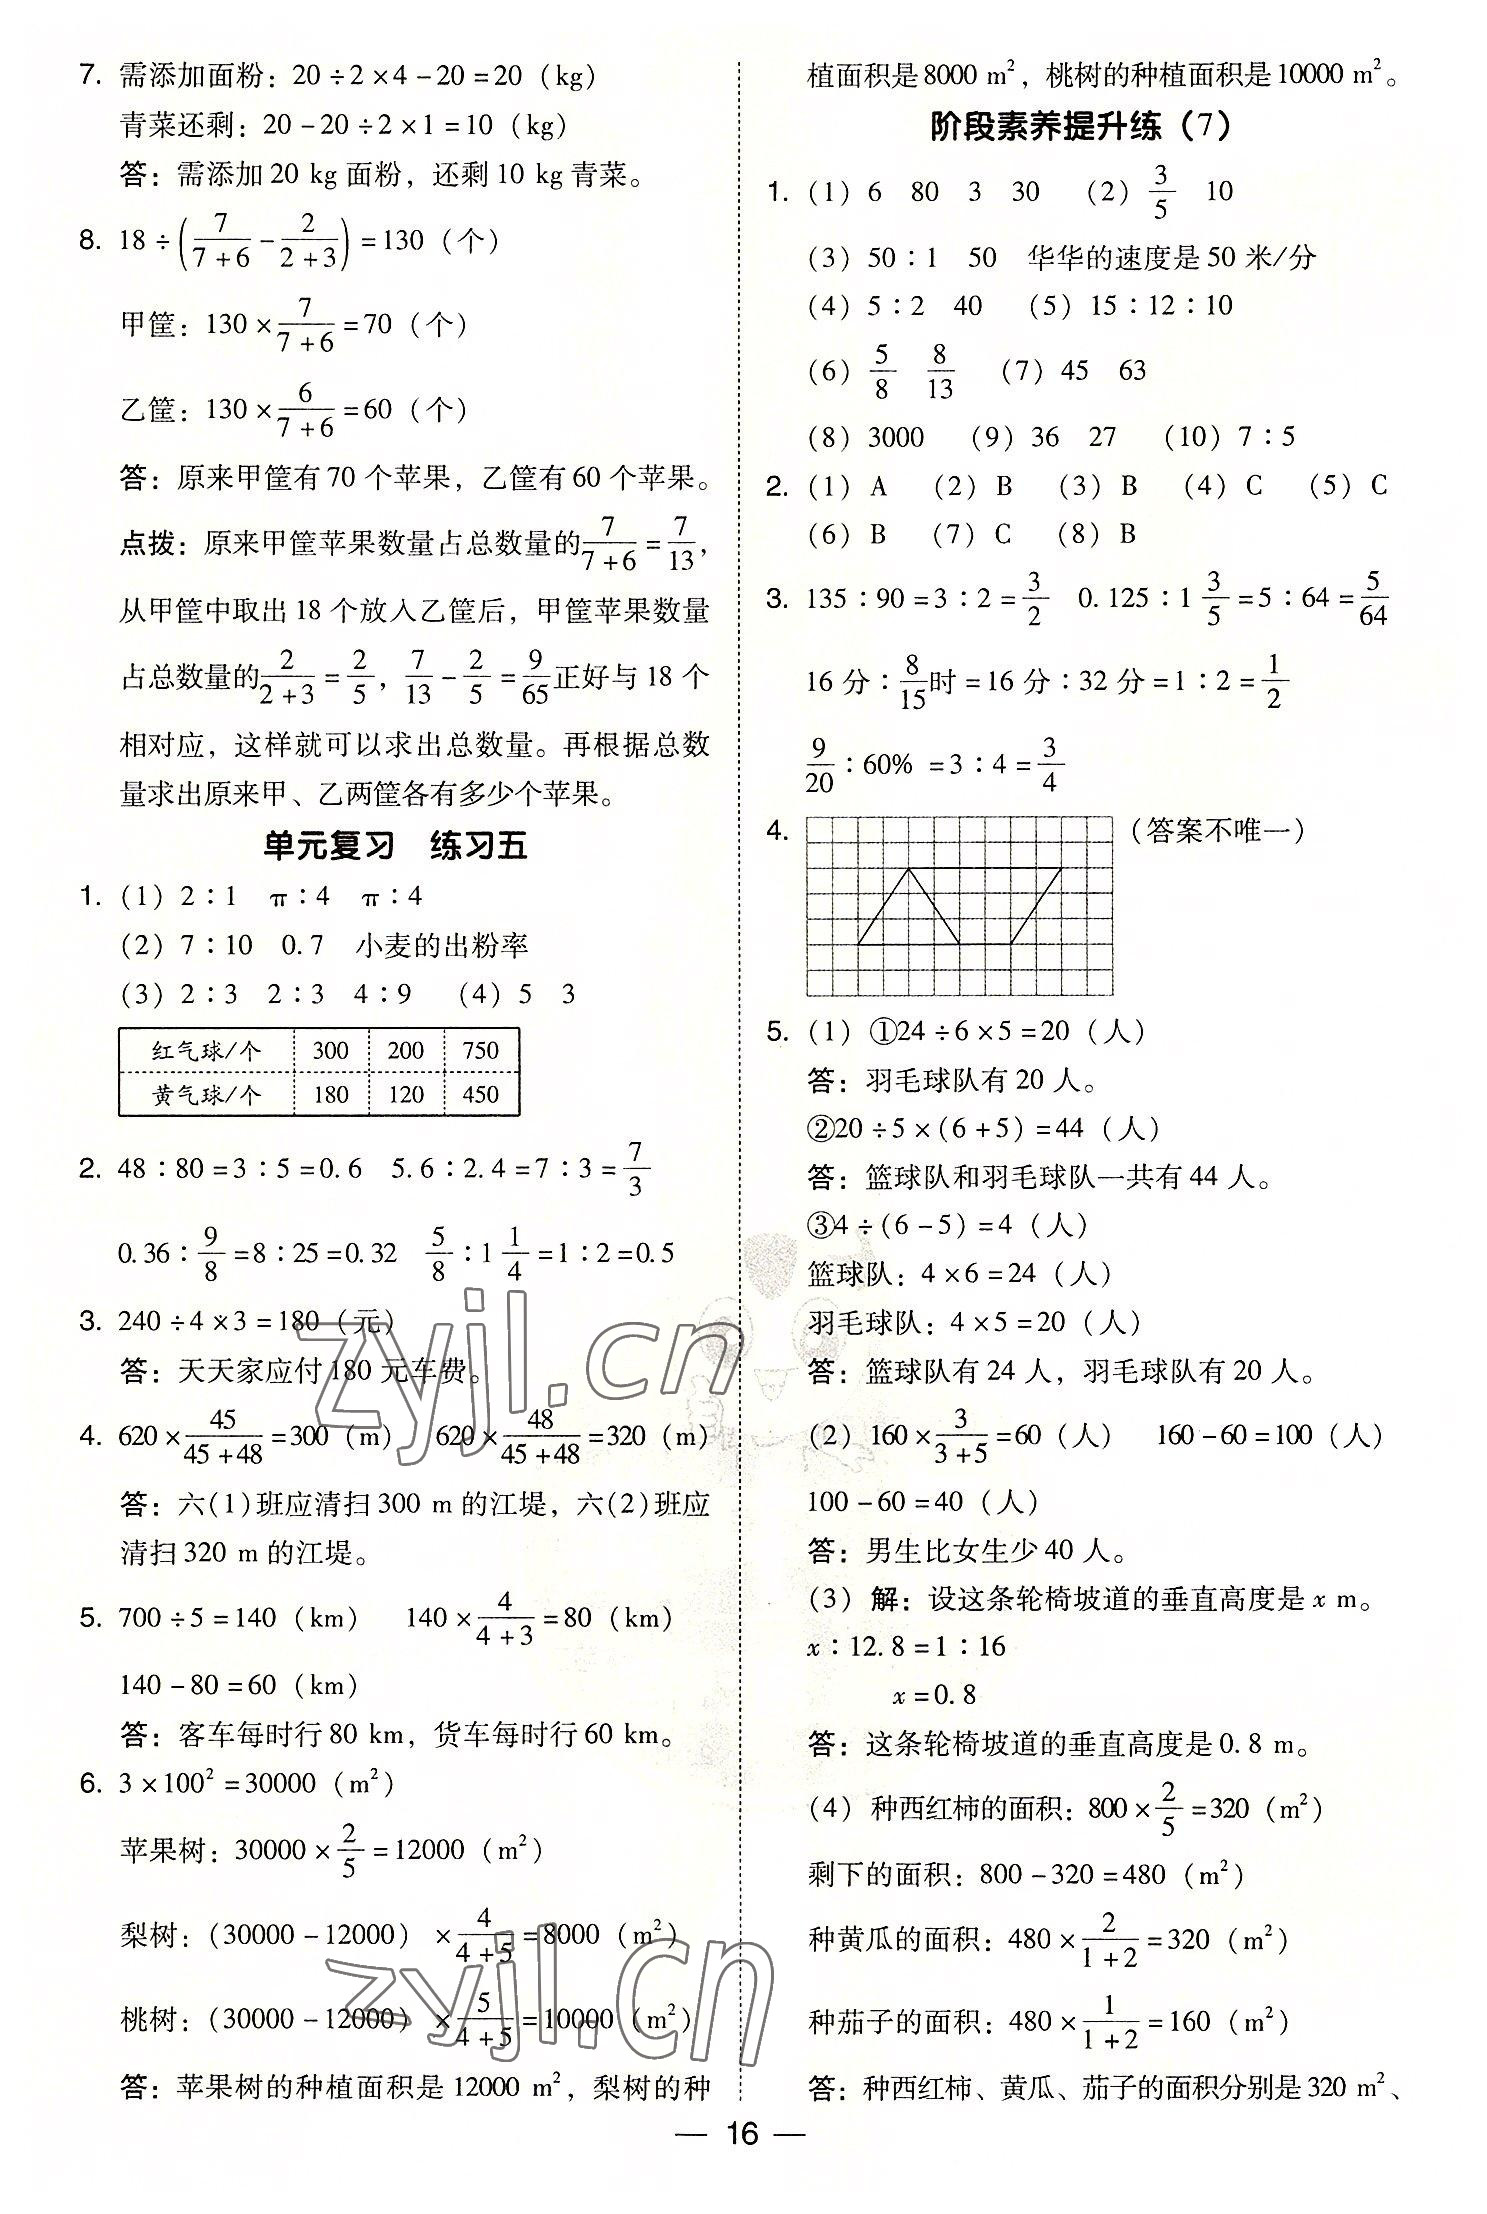 7. 需添加面粉：20÷2×4-20=20（kg）
青菜还剩：20-20÷2×1=10（kg）
答：需添加20 kg面粉，还剩10 kg青菜。
8. 18÷(7/(7+6)-2/(2+3))=130（个）
甲筐：130×7/(7+6)=70（个）
乙筐：130×6/(7+6)=60（个）
答：原来甲筐有70个苹果，乙筐有60个苹果。
点拨：原来甲筐苹果数量占总数量的7/(7+6)=7/13，
从甲筐中取出18个放入乙筐后，甲筐苹果数量
占总数量的2/(2+3)=2/5，7/13-2/5=9/65正好与18个
相对应，这样就可以求出总数量。再根据总数
量求出原来甲、乙两筐各有多少个苹果。
单元复习 练习五
1. (1) 2∶1 π∶4 π∶4
(2) 7∶10 0.7 小麦的出粉率
(3) 2∶3 2∶3 4∶9 (4) 5 3
红气球/个 300 200 750
黄气球/个 180 120 450
2. 48∶80=3∶5=0.6 5.6∶2.4=7∶3=7/3
0.36∶9/8=8∶25=0.32 5/8∶1 1/4=1∶2=0.5
3. 240÷4×3=180（元）
答：天天家应付180元车费。
4. 620×45/(45+48)=300（m） 620×48/(45+48)=320（m）
答：六(1)班应清扫300 m的江堤，六(2)班应
清扫320 m的江堤。
5. 700÷5=140（km） 140×4/(4+3)=80（km）
140-80=60（km）
答：客车每时行80 km，货车每时行60 km。
6. 3×100²=30000（m²）
苹果树：30000×2/5=12000（m²）
梨树：(30000-12000) ×4/(4+5)=8000（m²）
桃树：(30000-12000) ×5/(4+5)=10000（m²）
答：苹果树的种植面积是12000 m²，梨树的种
植面积是8000 m²，桃树的种植面积是10000 m²。
阶段素养提升练（7）
1. (1) 6 80 3 30 (2) 3/5 10
(3) 50∶1 50 华华的速度是50米/分
(4) 5∶2 40 (5) 15∶12∶10
(6) 5/8 8/13 (7) 45 63
(8) 3000 (9) 36 27 (10) 7∶5
2. (1) A (2) B (3) B (4) C (5) C
(6) B (7) C (8) B
3. 135∶90=3∶2=3/2 0.125∶1 3/5=5∶64=5/64
16分∶8/15时=16分∶32分=1∶2=1/2
9/20∶60%=3∶4=3/4
4. （答案不唯一）
5. (1) ①24÷6×5=20（人）
答：羽毛球队有20人。
②20÷5×(6+5)=44（人）
答：篮球队和羽毛球队一共有44人。
③4÷(6-5)=4（人）
篮球队：4×6=24（人）
羽毛球队：4×5=20（人）
答：篮球队有24人，羽毛球队有20人。
(2) 160×3/(3+5)=60（人） 160-60=100（人）
100-60=40（人）
答：男生比女生少40人。
(3) 解：设这条轮椅坡道的垂直高度是x m。
x∶12.8=1∶16
x=0.8
答：这条轮椅坡道的垂直高度是0.8 m。
(4) 种西红柿的面积：800×2/5=320（m²）
剩下的面积：800-320=480（m²）
种黄瓜的面积：480×2/(1+2)=320（m²）
种茄子的面积：480×1/(1+2)=160（m²）
答：种西红柿、黄瓜、茄子的面积分别是320 m²、
— 16 —
zyjl.cn
zyjl.cn